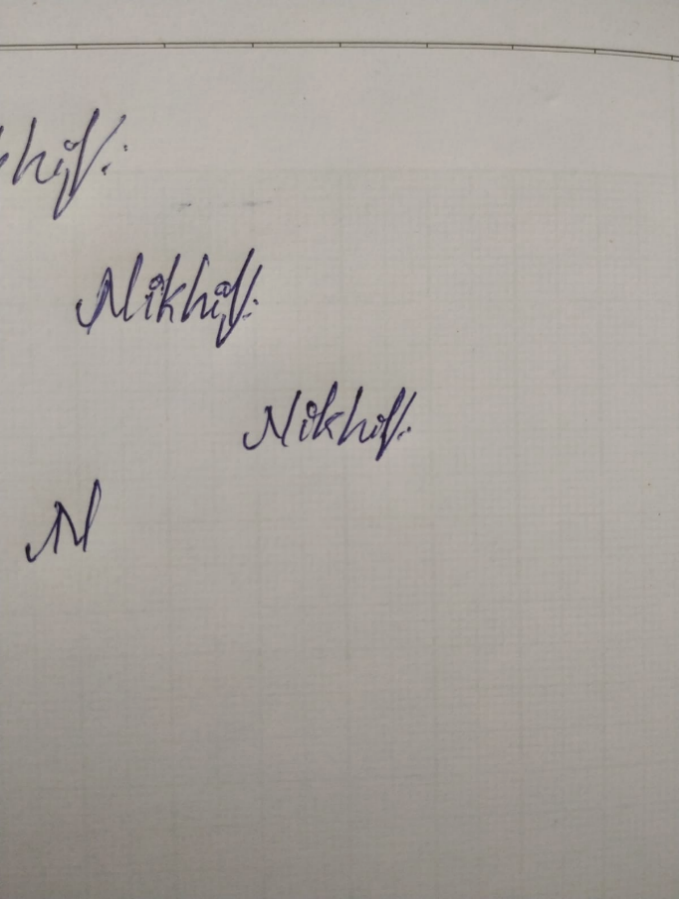 khil.
Nikhil.
Nikhil.
N